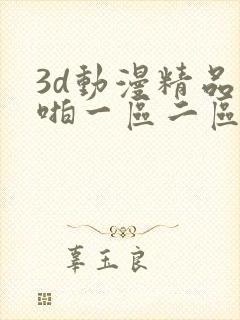 3d動漫精品
啪一區二區
辜玉良